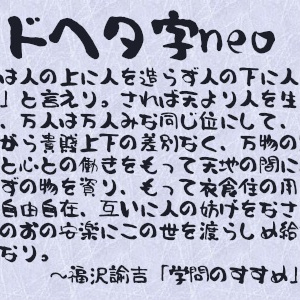 ドヘタ字neo
は人の上に人を造らず人の下に人
」と言えり。されば天より人を生
、万人は万人みな同じ位にして、
がら貴賤上下の差別なく、万物の
と心との働きをもって天地の間に
ずの物を資り、もって衣食住の用
自由自在、互いに人の妨げをなさ
のおの安楽にこの世を渡らしめ給
なり。
～福沢諭吉「学問のすすめ」